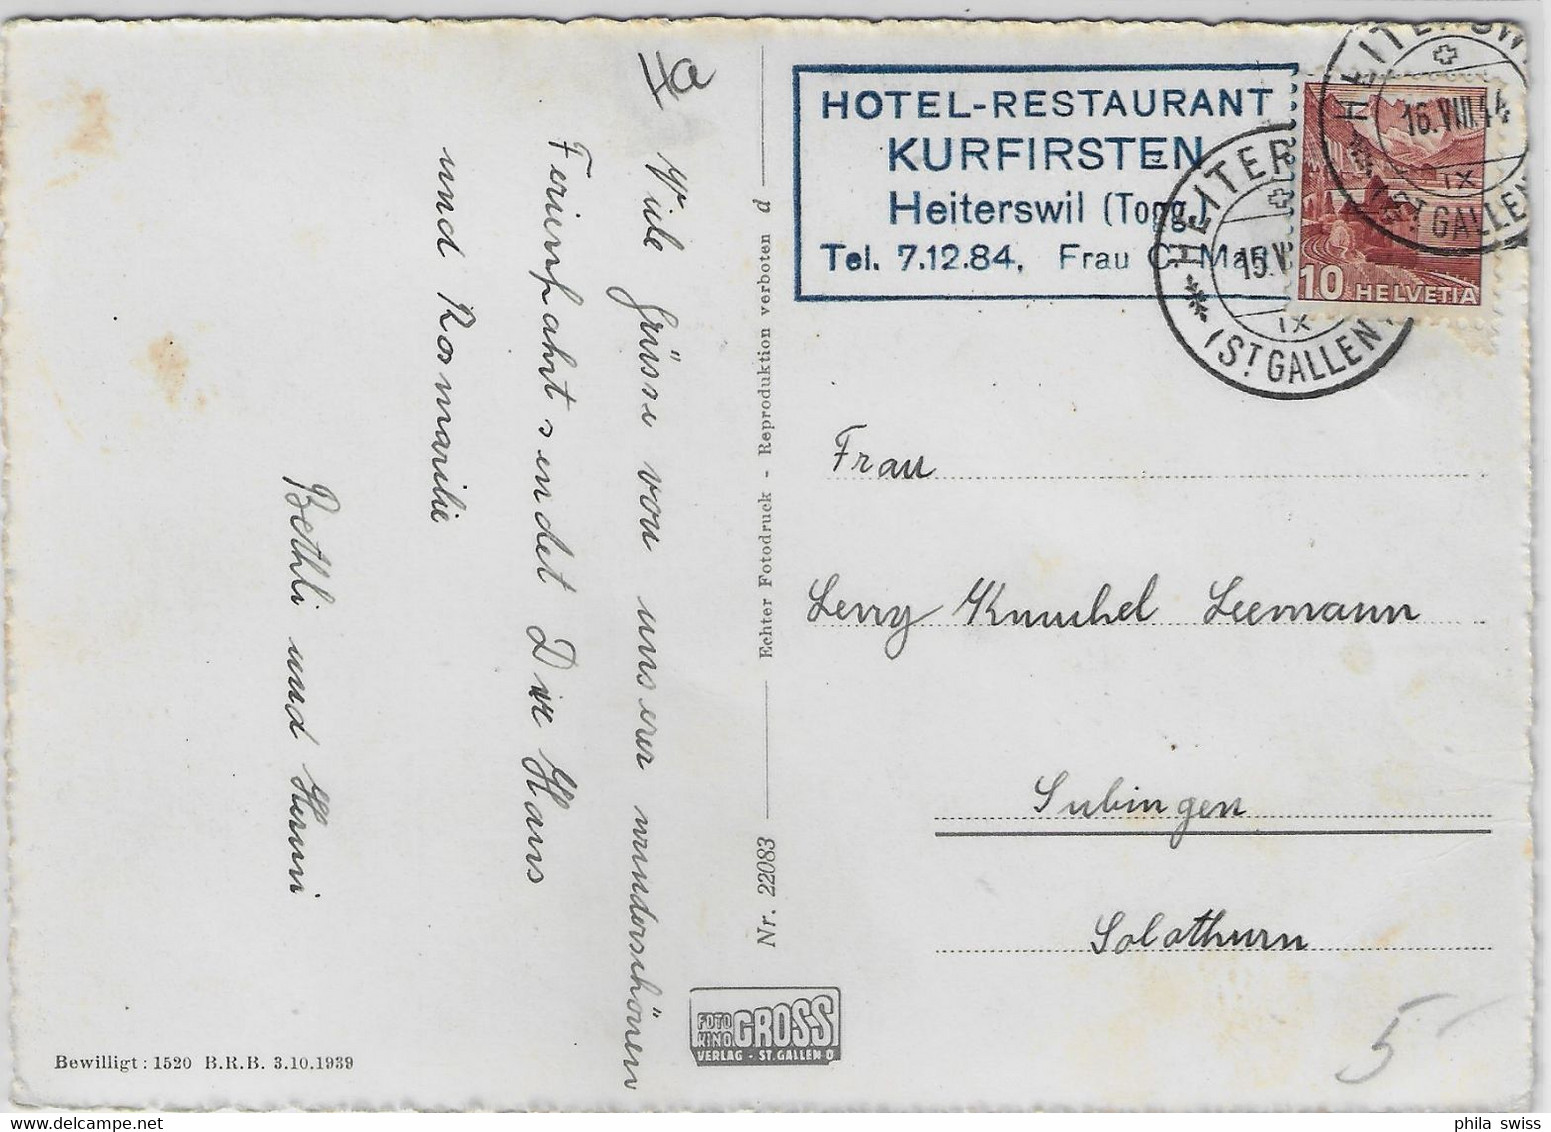 Ha
Viele Grüsse von unserer wunderschönen
Ferienfahrt sendet Dir Hans
und Rosmarilie
Bethli und Henni
Bewilligt: 1520 B.R.B. 3.10.1939
Nr. 22083 Echter Fotodruck - Reproduktion verboten d
FOTO
KINO
GROSS
VERLAG - ST. GALLEN O
HOTEL-RESTAURANT
KURFIRSTEN
Heiterswil (Togg.)
Tel. 7.12.84, Frau C.
HEITER
15.V
IX
(ST GALLEN)
HEITERSW
16.VIII.44
IX
(ST. GALLEN
10 HELVETIA
Frau
Leemann
Subingen
Solothurn
5-
phila swiss